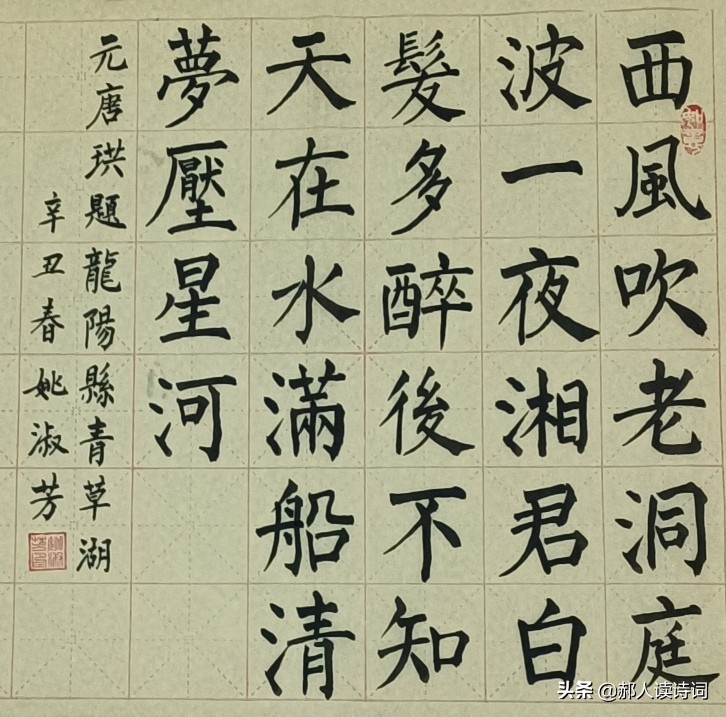 西風吹老洞庭
波一夜湘君白
髮多醉後不知
天在水滿船清
夢壓星河
元唐珙題龍陽縣青草湖
辛丑春姚淑芳
头条 @郝人读诗词